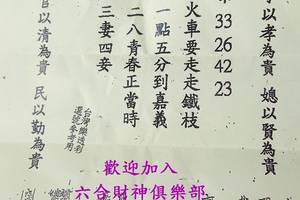 子以孝為貴 媳以賢為貴
33
26
42
23
火車要走走鐵枝
一點五分到嘉義
二八青春正當時
三妻四妾
台灣樂透彩
選號參考用
官以清為貴 民以勤為貴
歡迎加入
六合財神俱樂部